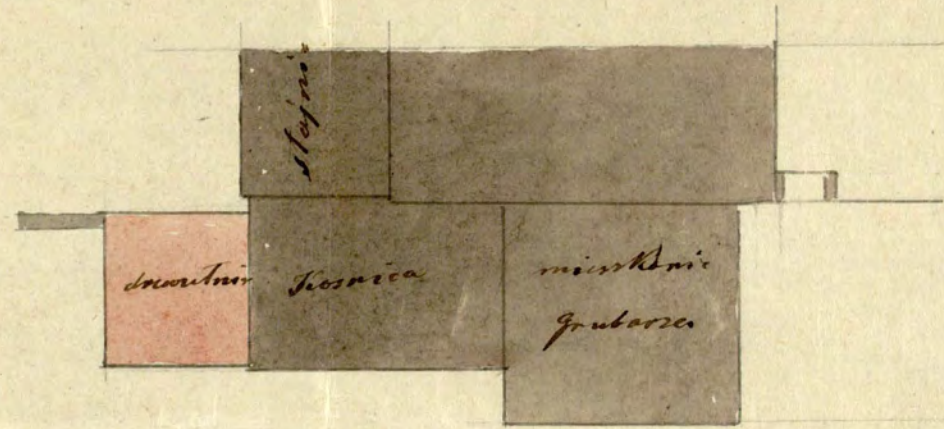 stajnie
drewutnie
Kosnica
mieszkanie
grubarza